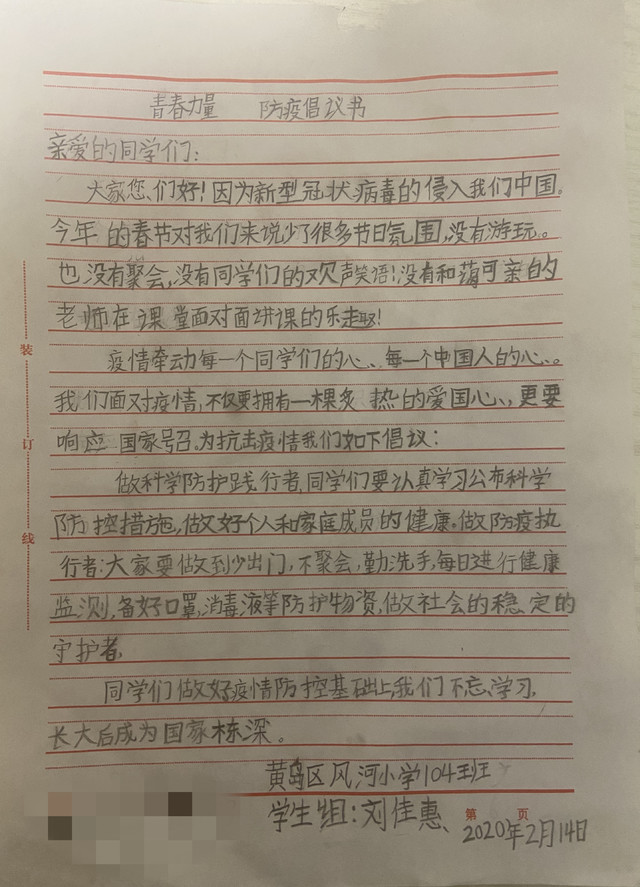 青春力量 防疫倡议书
亲爱的同学们:
大家您们好!因为新型冠状病毒的侵入我们中国。
今年的春节对我们来说少了很多节日氛围,没有游玩。
也没有聚会,没有同学们的欢声笑语!没有和蔼可亲的
老师在课堂面对面讲课的乐趣!
疫情牵动每一个同学们的心、每一个中国人的心。
我们面对疫情,不仅要拥有一棵多热的爱国心,更要
响应国家号召。为抗击疫情我们如下倡议:
做科学防护践行者,同学们要认真学习公布科学
防控措施,做好个人和家庭成员的健康。做防疫执
行者:大家要做到少出门,不聚会,勤洗手,每日进行健康
监测,备好口罩,消毒液等防护物资,做社会的稳定的
守护者,
同学们做好疫情防控基础上,我们不忘学习,
长大后成为国家栋深。
黄岛区风河小学104班
学生组:刘佳惠
第 页
2020年2月14日
装
订
线